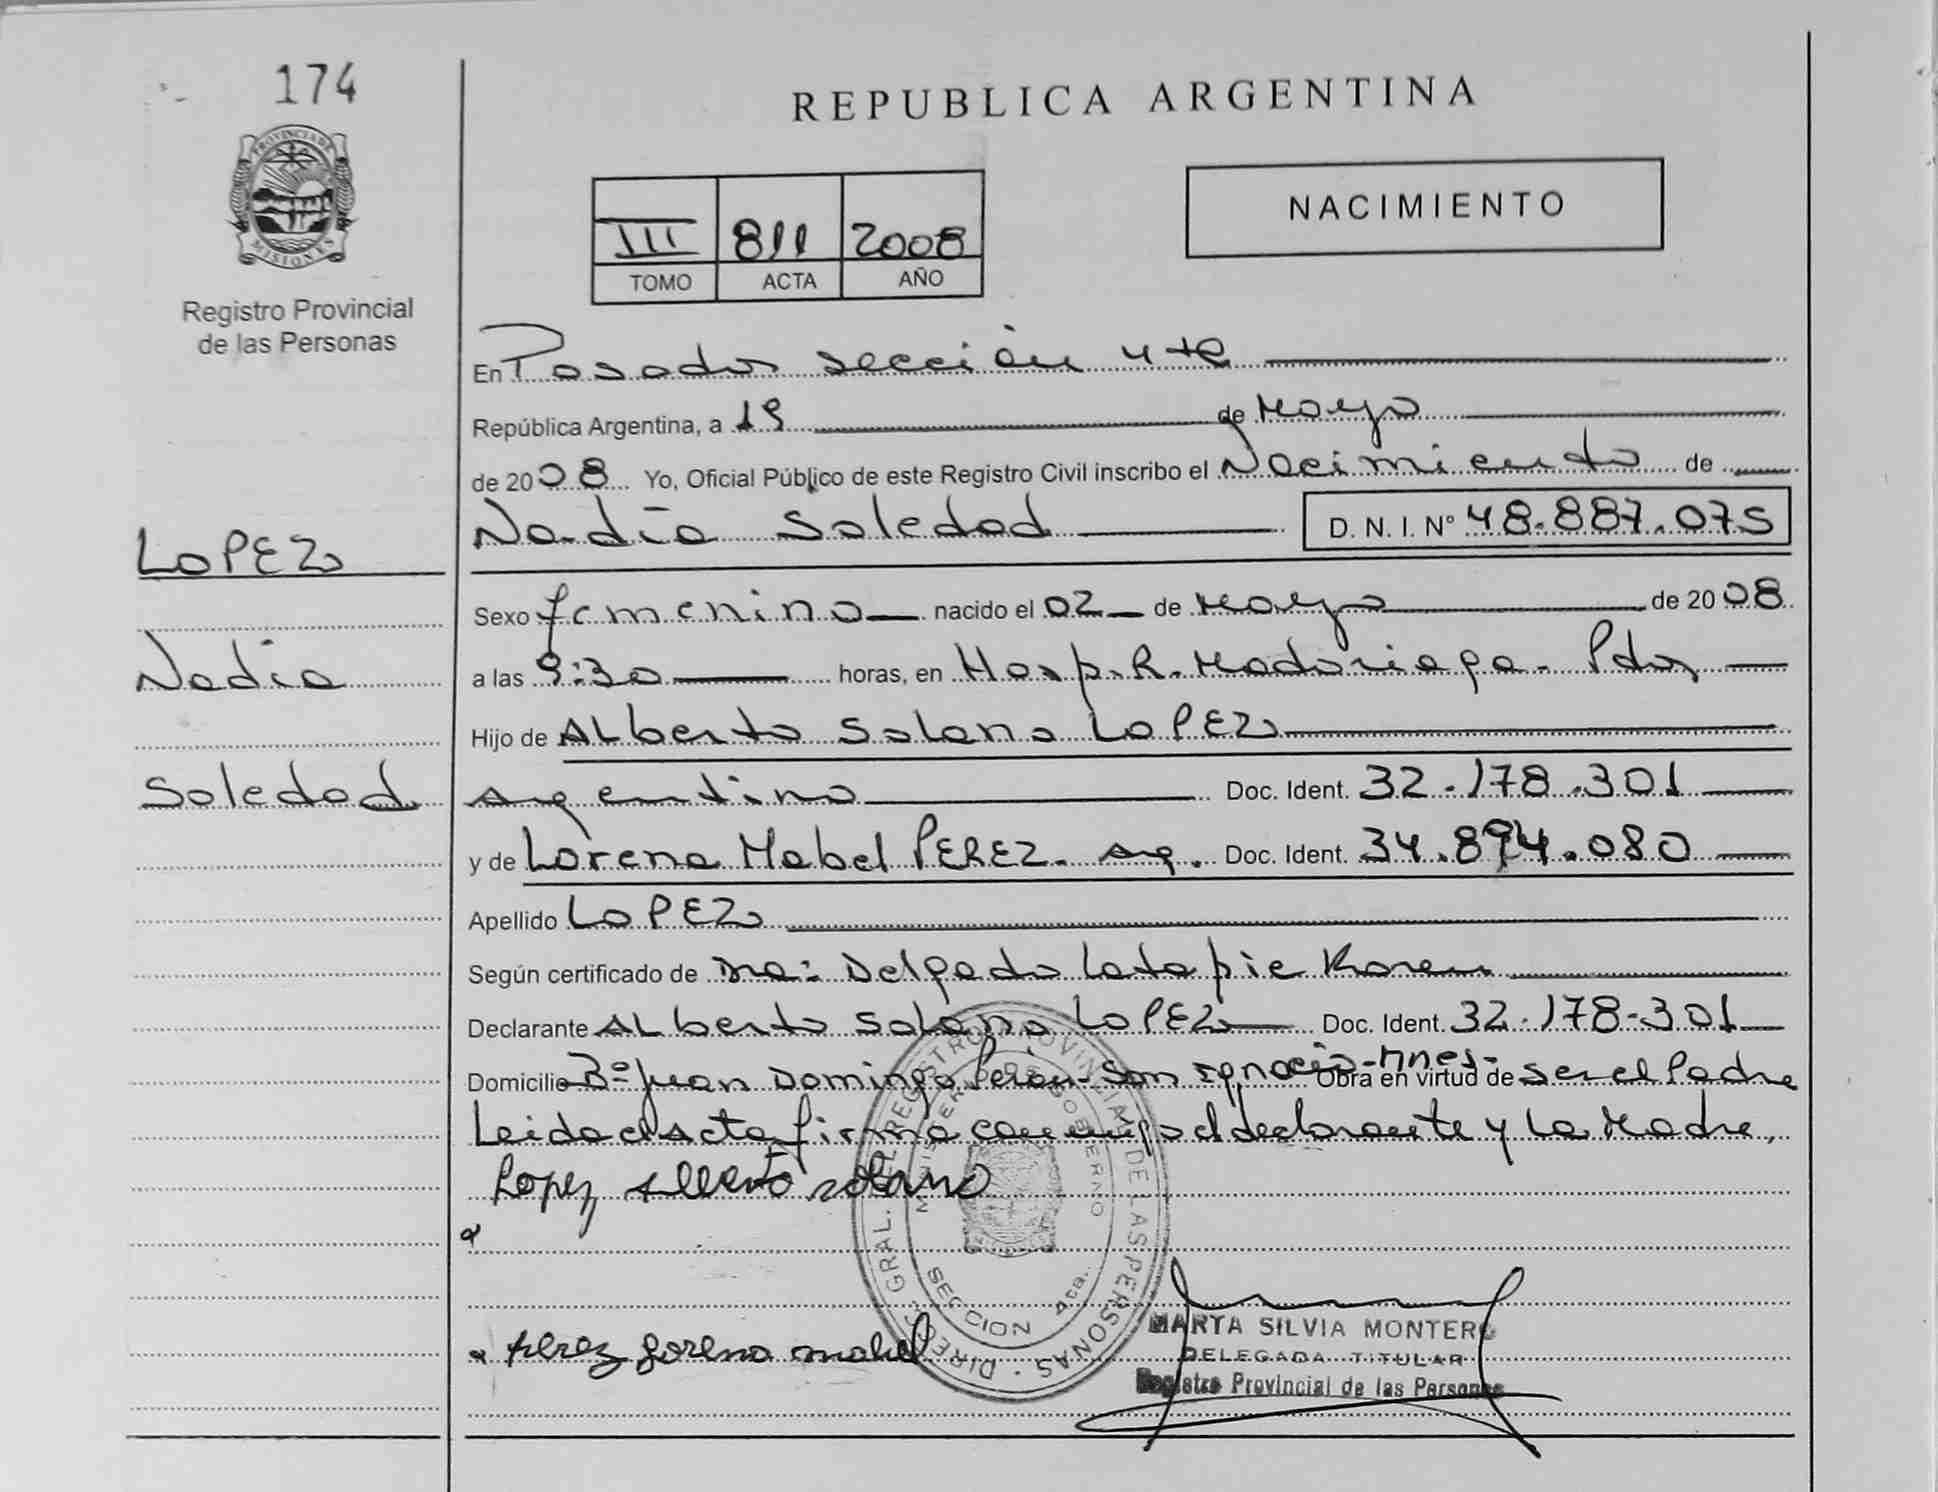 174
PROVINCIA DE
MISIONES
Registro Provincial
de las Personas
LOPEZ
Nadia
Soledad
REPUBLICA ARGENTINA
III 811 2008
TOMO ACTA AÑO
NACIMIENTO
En Posadas sección 4ta
República Argentina, a 19 de Mayo
de 2008 Yo, Oficial Público de este Registro Civil inscribo el Nacimiento de
Nadia Soledad D. N. I. N° 48.887.075
Sexo femenino nacido el 02 de Mayo de 2008
a las 9:30 horas, en Hosp. R. Madariaga. Pdas
Hijo de ALberto Solano LOPEZ
Argentino Doc. Ident. 32.178.301
y de Lorena Mabel PEREZ. Arg. Doc. Ident. 34.894.080
Apellido LOPEZ
Según certificado de Dra: Delgado Latapie Karen
Declarante ALberto Solano LOPEZ Doc. Ident. 32.178-301
Domicilio B° Juan Domingo Perón - San Ignacio - Mnes - Obra en virtud de ser el Padre
Leida el Acta firma conmigo el declarante y La Madre,
Lopez Alberto solano
Perez Lorena mabel
DIREC. GRAL. DEL REGISTRO PROVINCIAL DE LAS PERSONAS
MINISTERIO DE GOBIERNO
SECCION 4ta.
MARTA SILVIA MONTERO
DELEGADA TITULAR
Registro Provincial de las Personas